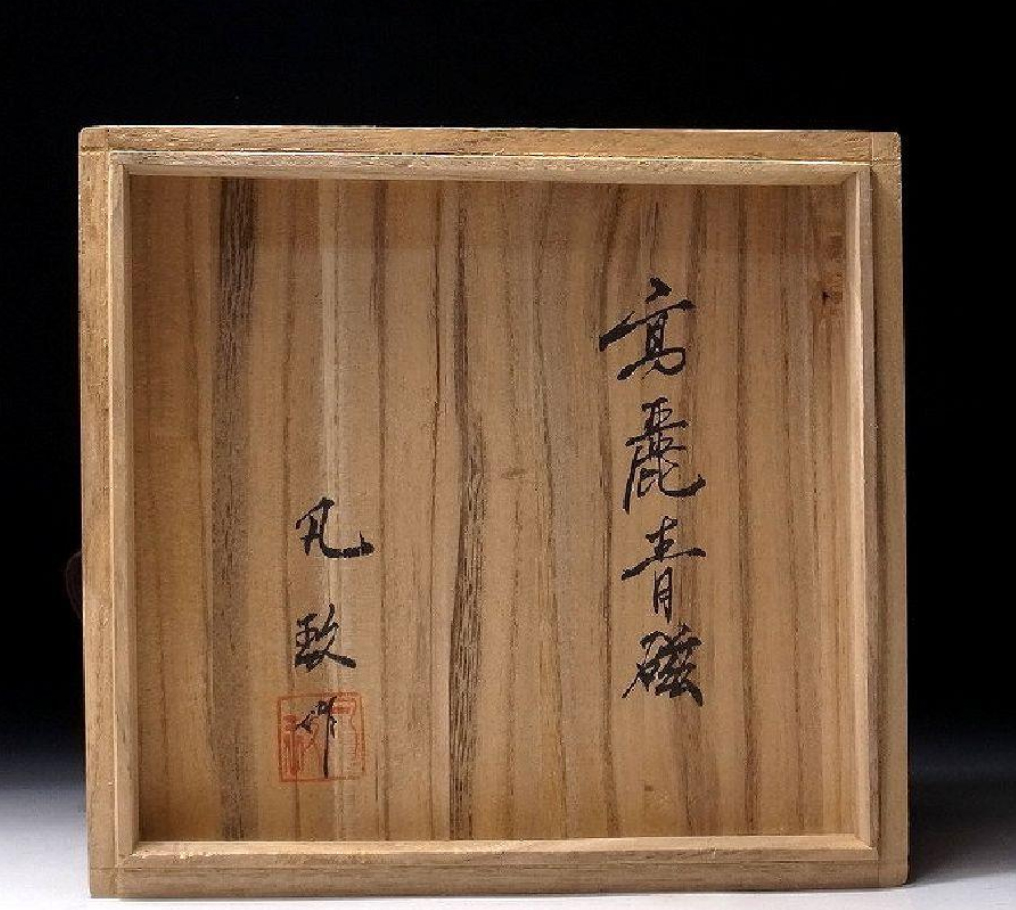 高麗青磁
凡致作